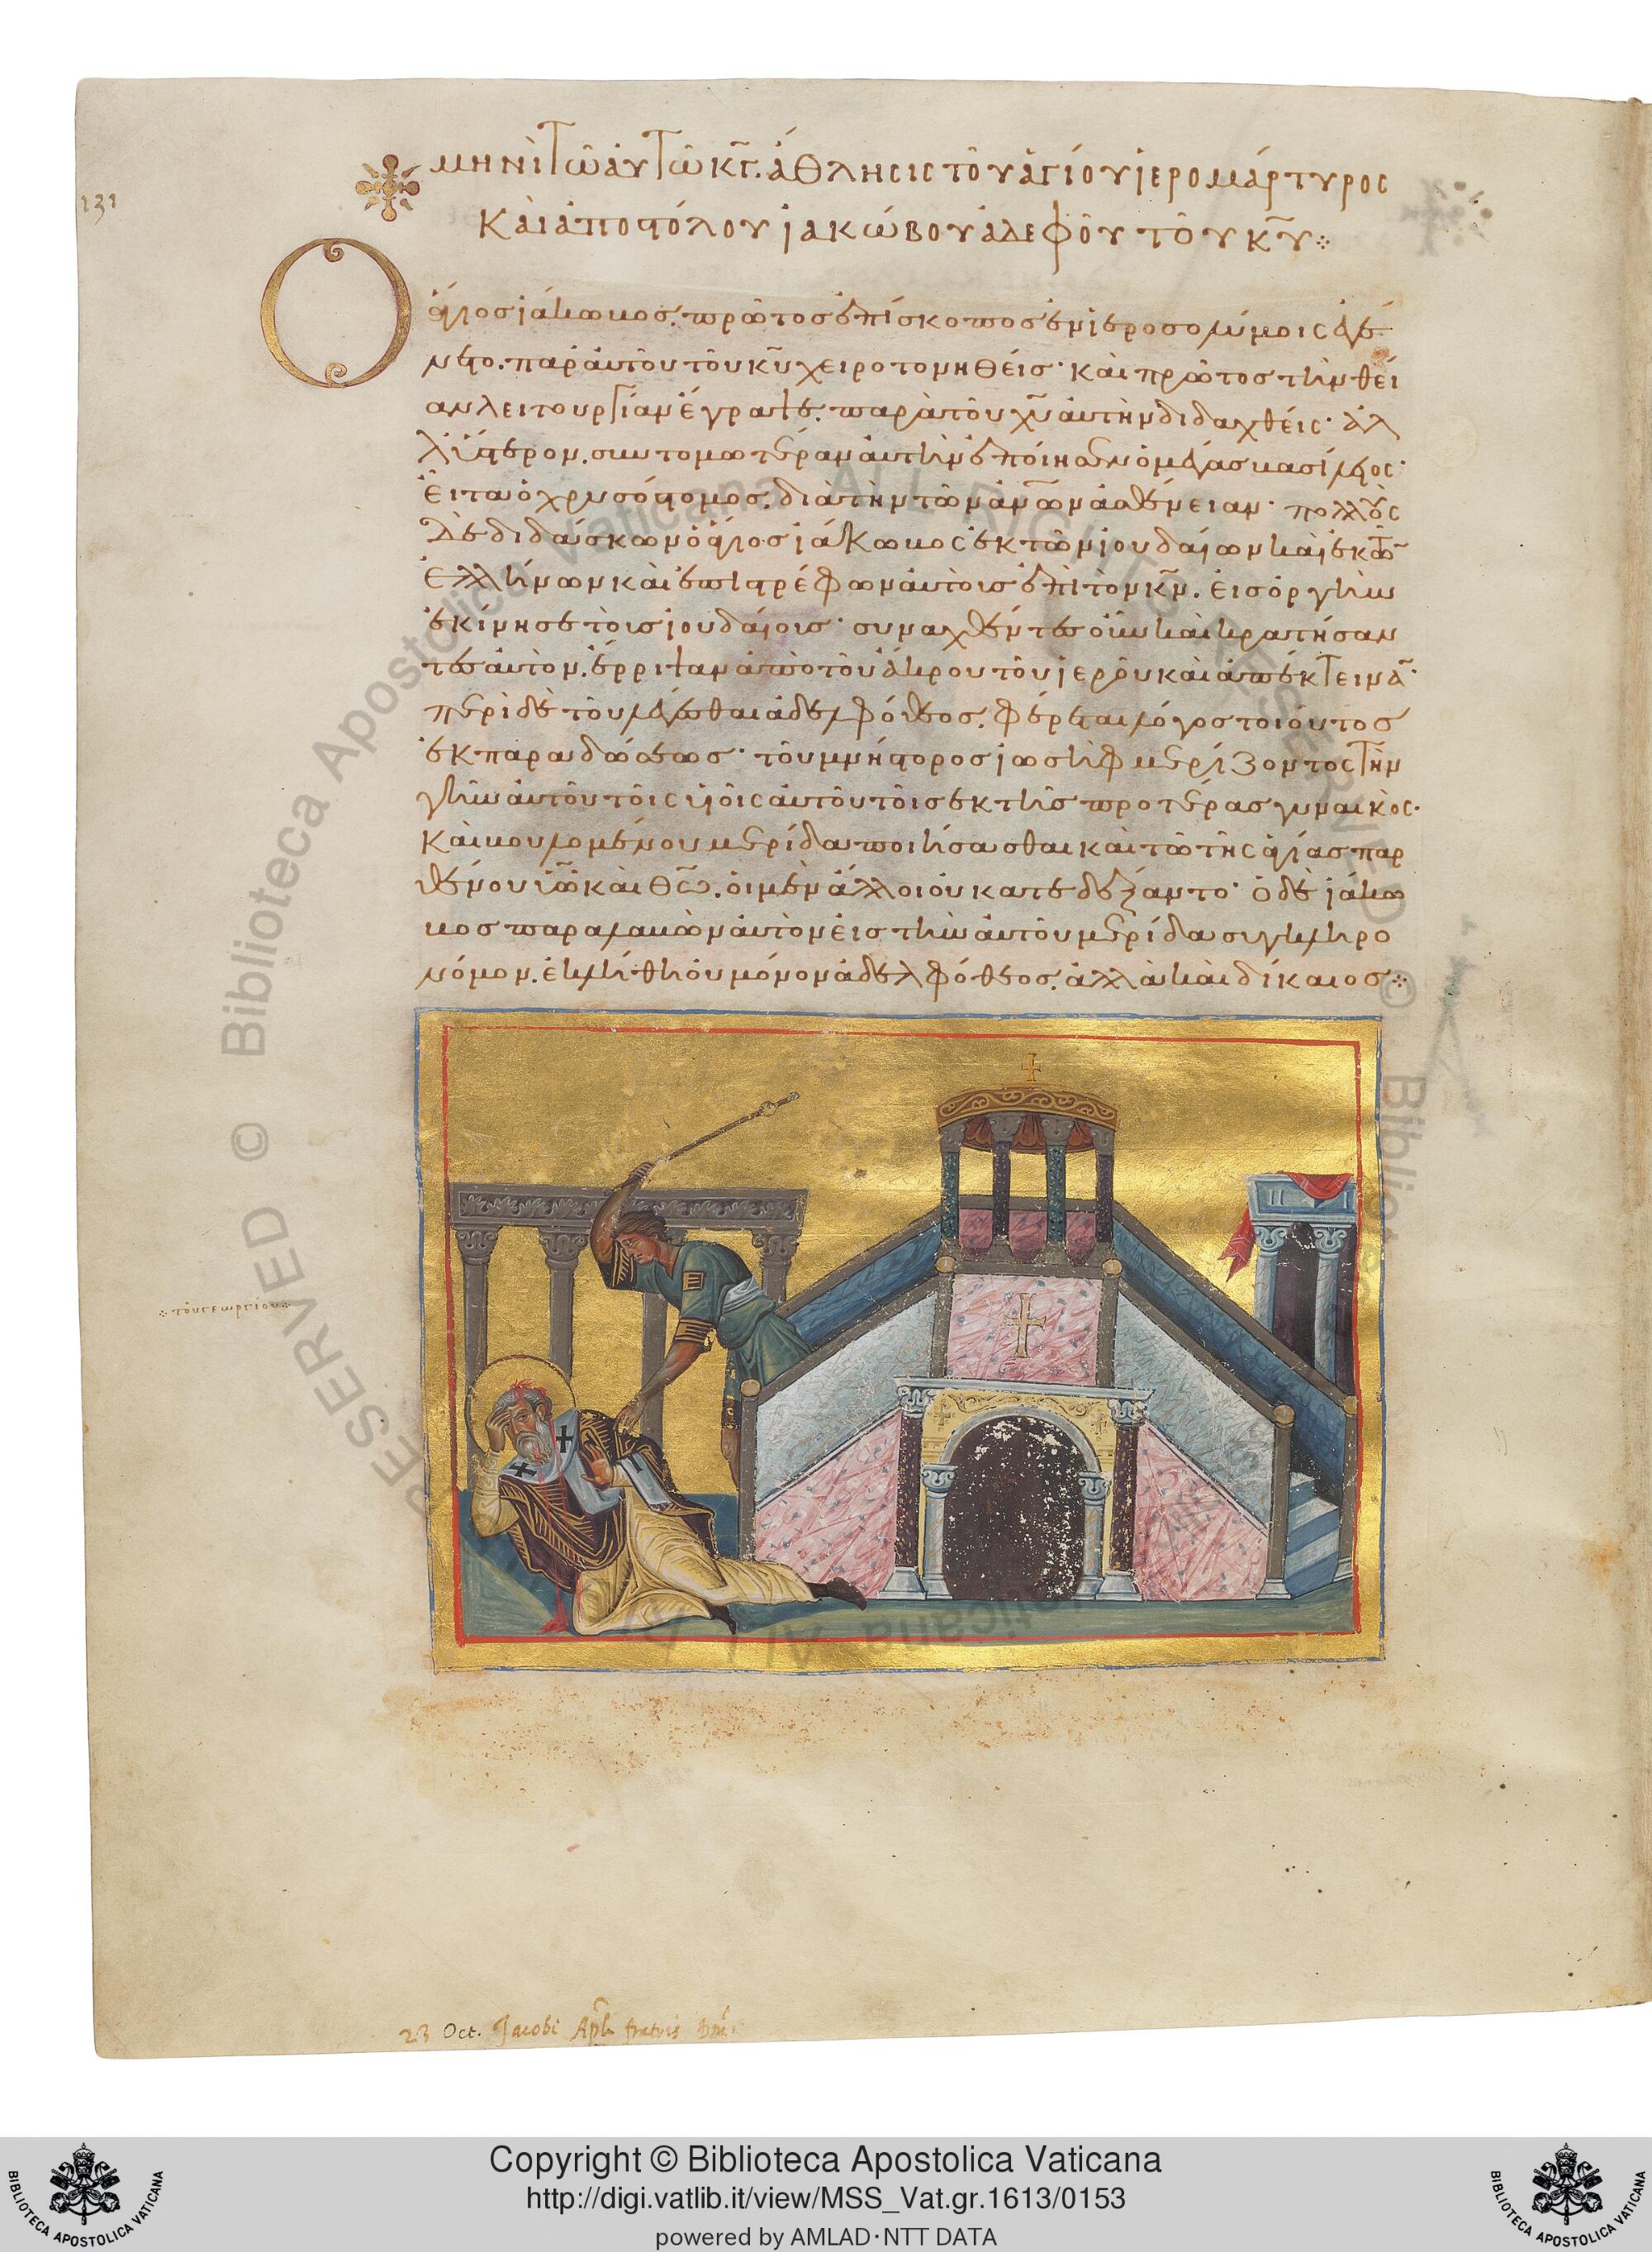 131
μηνὶ τῶ αὐτῶ κγ. ἄθλησις τοῦ ἁγίου ἱερομάρτυρος
καὶ ἀποστόλου ἰακώβου ἀδελφοῦ τοῦ κυ
Ο ἅγιος ἰάκωβος. πρῶτος ἐπίσκοπος ἐν ἱεροσολύμοις ἐγέ
νετο. παρ αὐτοῦ τοῦ κυ χειροτονηθείς· καὶ πρῶτος τὴν θεί
αν λειτουργίαν ἔγραψε. παρὰ τοῦ χυ αὐτὴν διδαχθείς· ἀλ
λ ὕστερον. συντομωτέραν αὐτὴν ἐποίησεν ὁ μέγας βασίλειος·
εἶτα ὁ χρυσόστομος. διὰ τὴν τῶν ἀνων ἀσθένειαν· πολλοὺς
δὲ διδάσκων ὁ ἅγιος ἰάκωβος ἐκ τῶν ἰουδαίων καὶ ἐκ τῶ
ἑλλήνων καὶ ἐπιστρέφων αὐτοὺς ἐπὶ τὸν κν. εἰς ὀργὴν
ἐκίνησε τοὺς ἰουδαίους· συναχθέντες οὖν καὶ κρατήσαν
τες αὐτὸν. ἔρριψαν ἀπὸ τοῦ ἄκρου τοῦ ἱεροῦ καὶ ἀπέκτειναν·
περὶ δὲ τοῦ λέγεσθαι ἀδελφόθεος. φέρεται λόγος τοιοῦτος
ἐκ παραδόσεως· τοῦ μνήστορος ἰωσὴφ μερίζοντος τὴν
γῆν αὐτοῦ τοῖς υἱοῖς αὐτοῦ τοῖς ἐκ τῆς προτέρας γυναικὸς·
καὶ βουλομένου μερίδα ποιήσασθαι καὶ τῶ τῆς ἁγίας παρ
θένου υιῶ καὶ θω. οἱ μὲν ἄλλοι οὐ κατεδέξαντο· ὁ δὲ ἰάκω
βος παραλαβὼν αὐτὸν εἰς τὴν αὐτοῦ μερίδα συγκληρο
νόμον. ἐκλήθη οὐ μόνον ἀδελφόθεος. ἀλλὰ καὶ δίκαιος
23 Oct. Jacobi Apli fratris Dni
Copyright © Biblioteca Apostolica Vaticana
http://digi.vatlib.it/view/MSS_Vat.gr.1613/0153
powered by AMLAD·NTT DATA
BIBLIOTECA APOSTOLICA VATICANA
BIBLIOTECA APOSTOLICA VATICANA